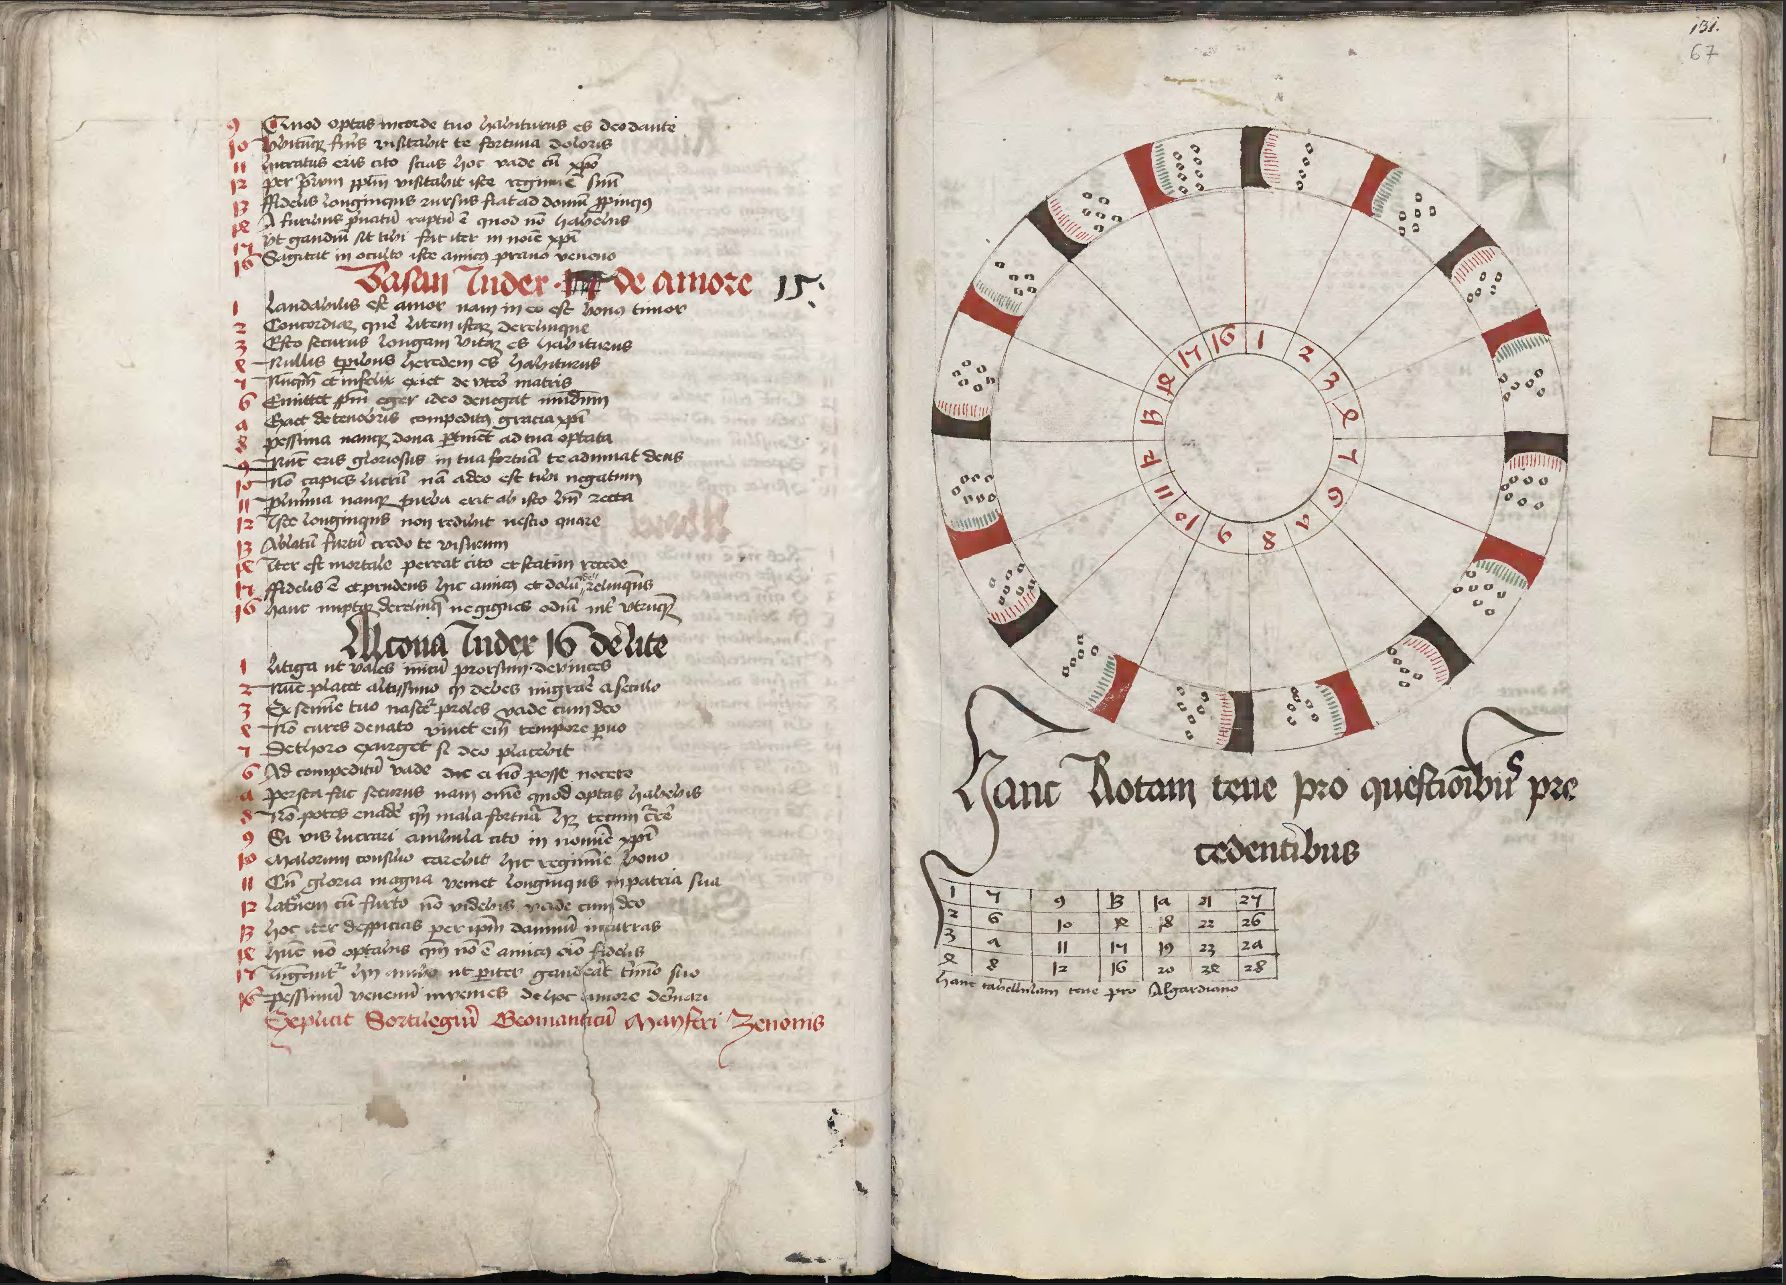 9 Quod optas incorde tuo habiturus es deo dante
10 visitabit te fortuna doloris
11 lucratus eris cito scias hoc vade cū xpo
12 per visitabit iste regimē suū
13 ffidelis longinquus rursus fiat ad domū
14 A furibus priuatū raptū ē quod nō habebis
15 Vt gaudiū sit tibi fac iter in noīe xpi
16 Sagitat in oculto iste amicus prauo veneno
Basan Iudex de amore 15
1 Laudabilis est amor nam in eo est bonus timor
2 Concordiā litem derelinque
3 Esto securus longam vitam es habiturus
4 Nullis tpibus heredem es habiturus
5 Nuq̄m et infelix exiet de vtero matris
6 Emittet eger adeo denegat
7 Exiet de tenebris compeditus gracia xpi
8 pessima nanq̄ dona ad tua optata
9 Nūc eris gloriosus in tua fortuna te adiuuat deus
10 Nō capies lucrū nā adeo est tibi negatum
11 plurima nanq̄ turba erit ab isto recta
12 Iste longinquus non redibit nescio quare
13 Ablatū furtū credo te visurum
14 Iter est mortale pereat cito et statim recede
15 ffidelis ē et prudens hic amicus et dolū relinquens
16 hanc nuptā derelinq̄ ne gignes odiū int vtrumq̄
Alcona Iudex 16 de lite
1 litiga ut vales inimicū prorsum deuinces
2 Nūc placet altissimo debes migrare a seculo
3 Ex semine tuo nascet proles vade cum deo
4 Nō cures de nato viuet tempore paruo
5 De thoro exurget si deo placebit
6 Ad compeditū vade dic ei nō posse nocere
7 perfca fac securus nam omē quod optas habebis
8 Nō potes euadē mala fortunā tecum
9 Si vis lucrari ambula cito in nomīe xpi
10 Malorum consilio carebit hic regimīe bono
11 Cū gloria magna veniet longinqus inpatria sua
12 latronem cū furto nō videbis vade cum deo
13 hoc iter despicias per ipm damnū incurras
14 hūc nō optabis nō ē amicus fidelis
15 ambo ut pariter gaudeāt suo
16 pessimū venenū inuenies de hoc amore
Explicit Sortilegiū Geomanticū Manfrei Zenonis
131.
67
1 2 3 4 5 6 7 8 9 10 11 12 13 14 15 16
Hanc Rotam tene pro questionibus pre
cedentibus
1 5 9 13 17 21 25
2 6 10 14 18 22 26
3 7 11 15 19 23 27
4 8 12 16 20 24 28
hanc tabellulam tene pro Algardiano